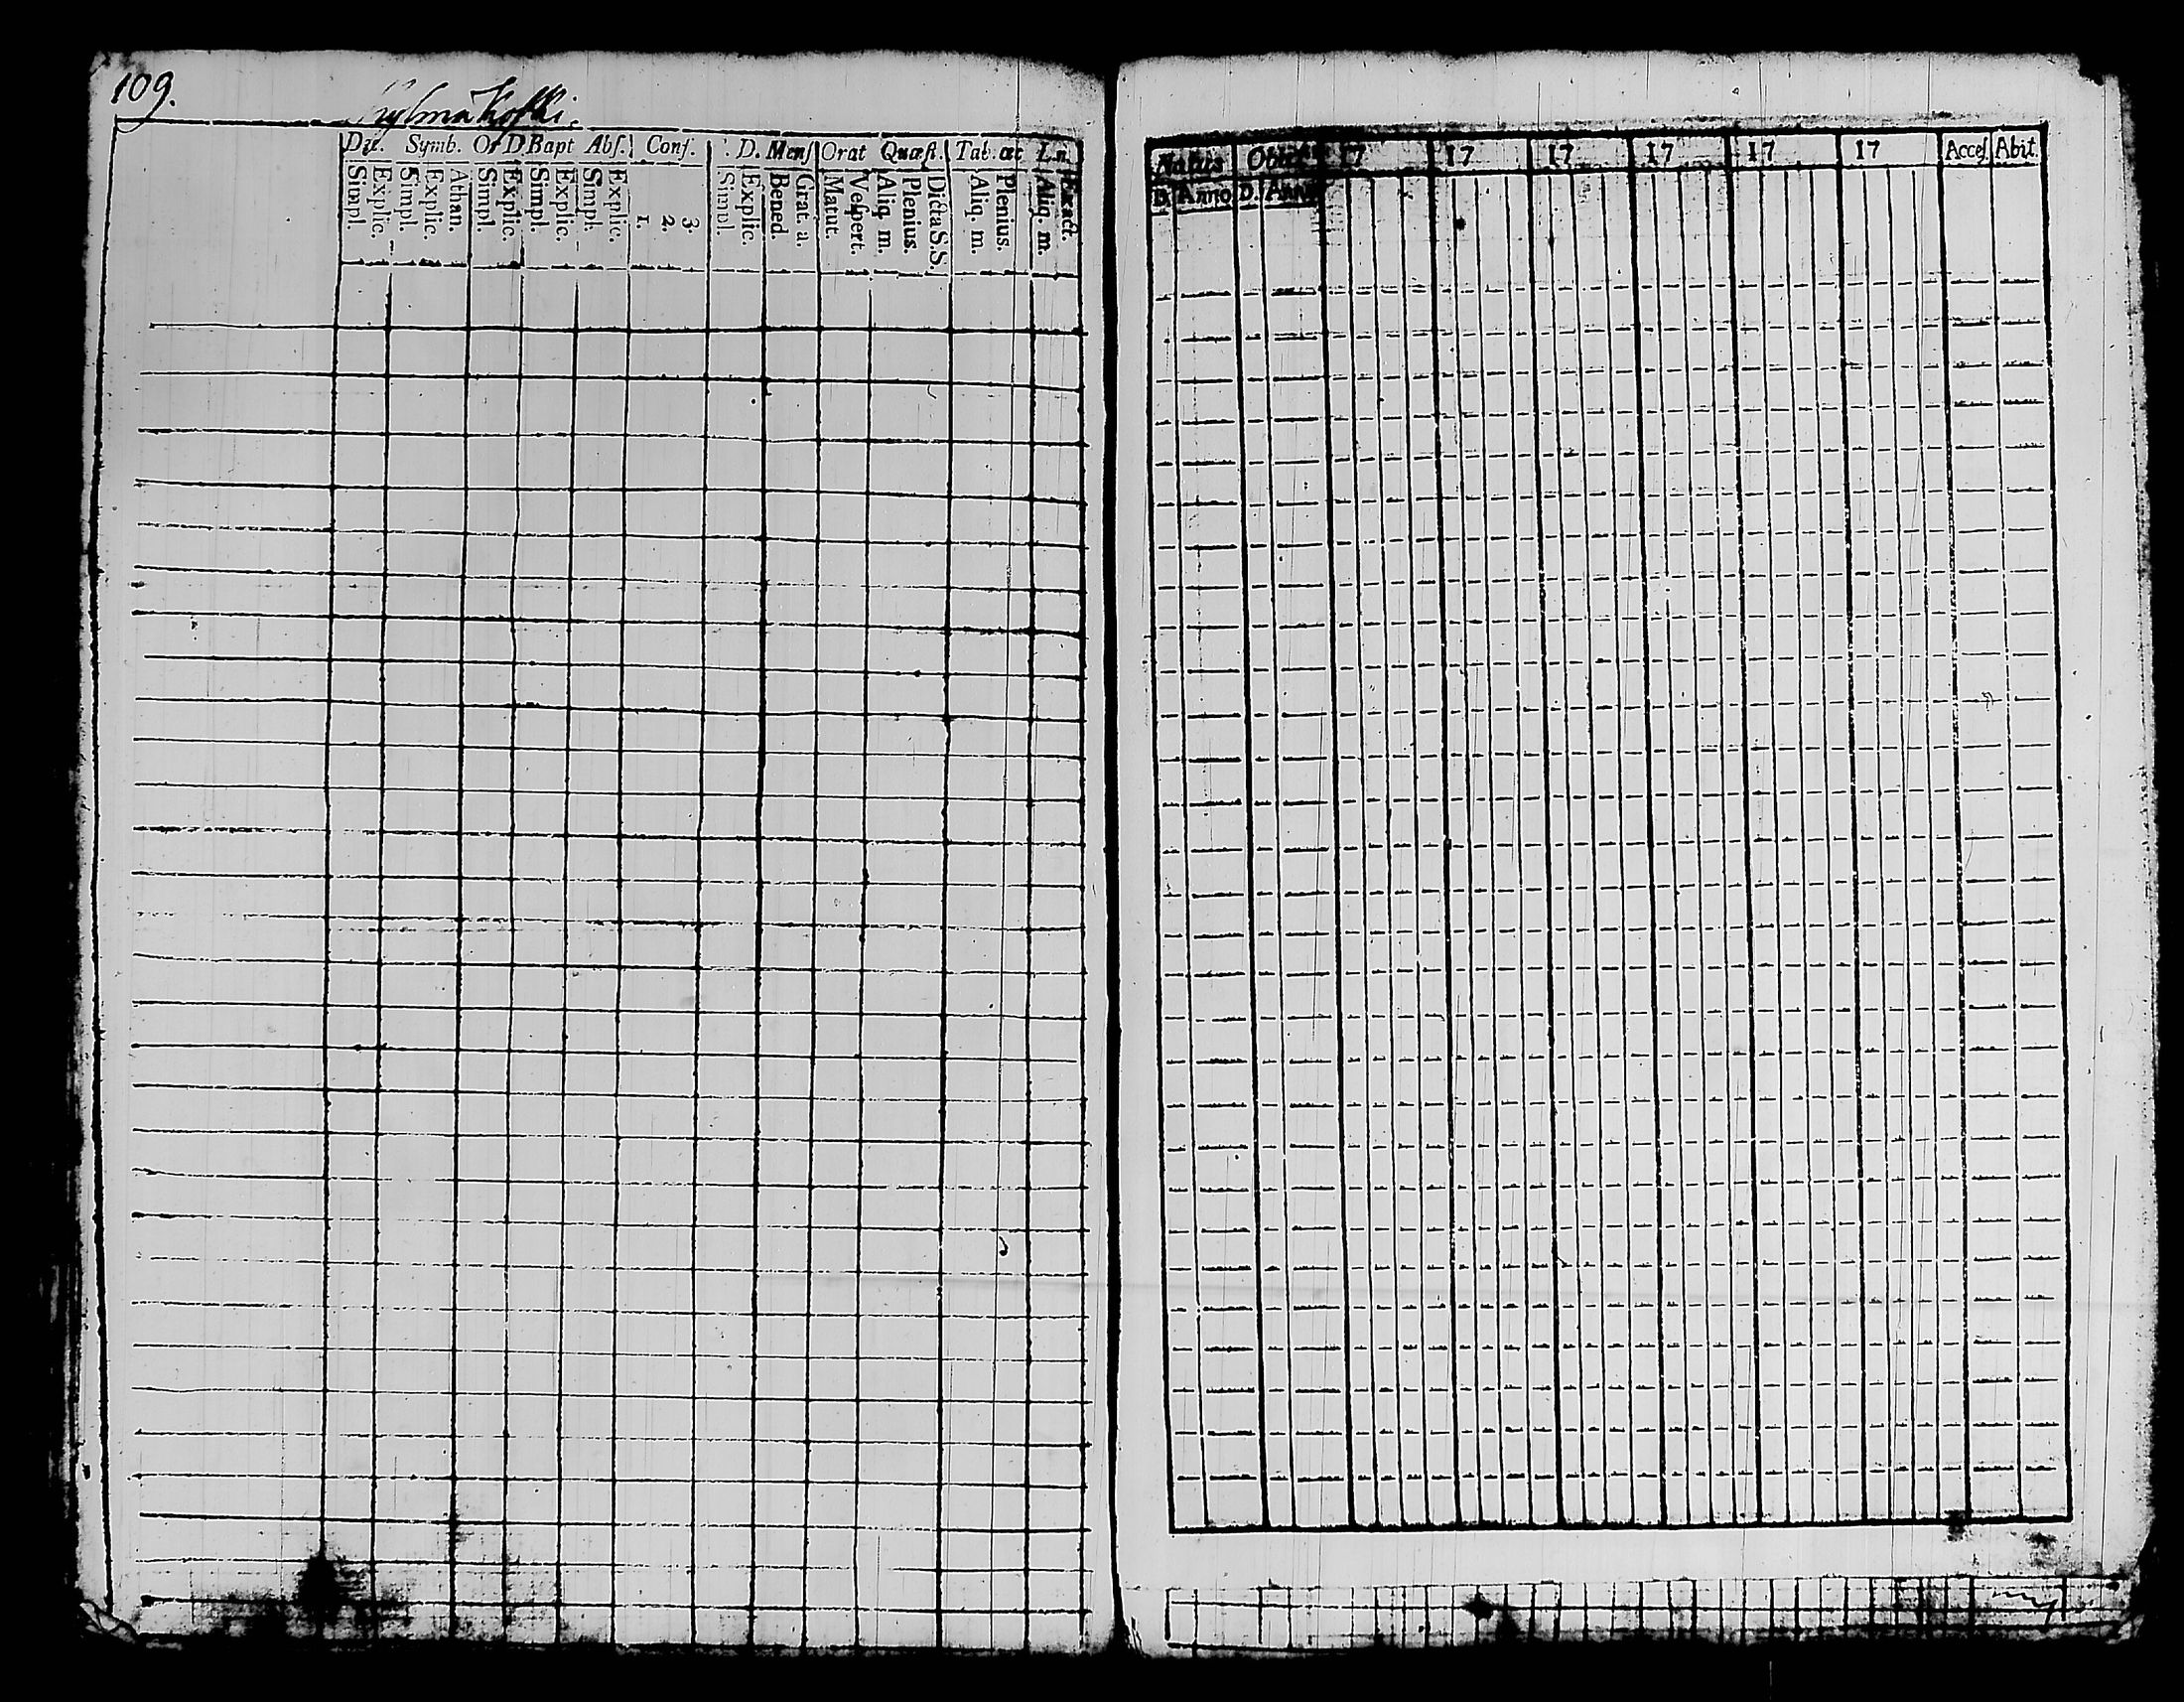 109.
Dec. Symb. Or D Bapt Abſ. Conf. D. Menſ Orat Quæſt. Tab. œc Ln.
Simpl. Explic. Simpl. Explic. Athan. Simpl. Explic. Simpl. Explic. Simpl. Explic. 1. 2. 3. Simpl. Explic. Bened. Grat. a. Matut. Veſpert. Aliq. m. Plenius. Dicta S.S. Aliq. m. Plenius. Aliq. m. Exact.
Natus Obiit 17 17 17 17 17 17 Acceſ. Abit.
D. Anno D. Anno